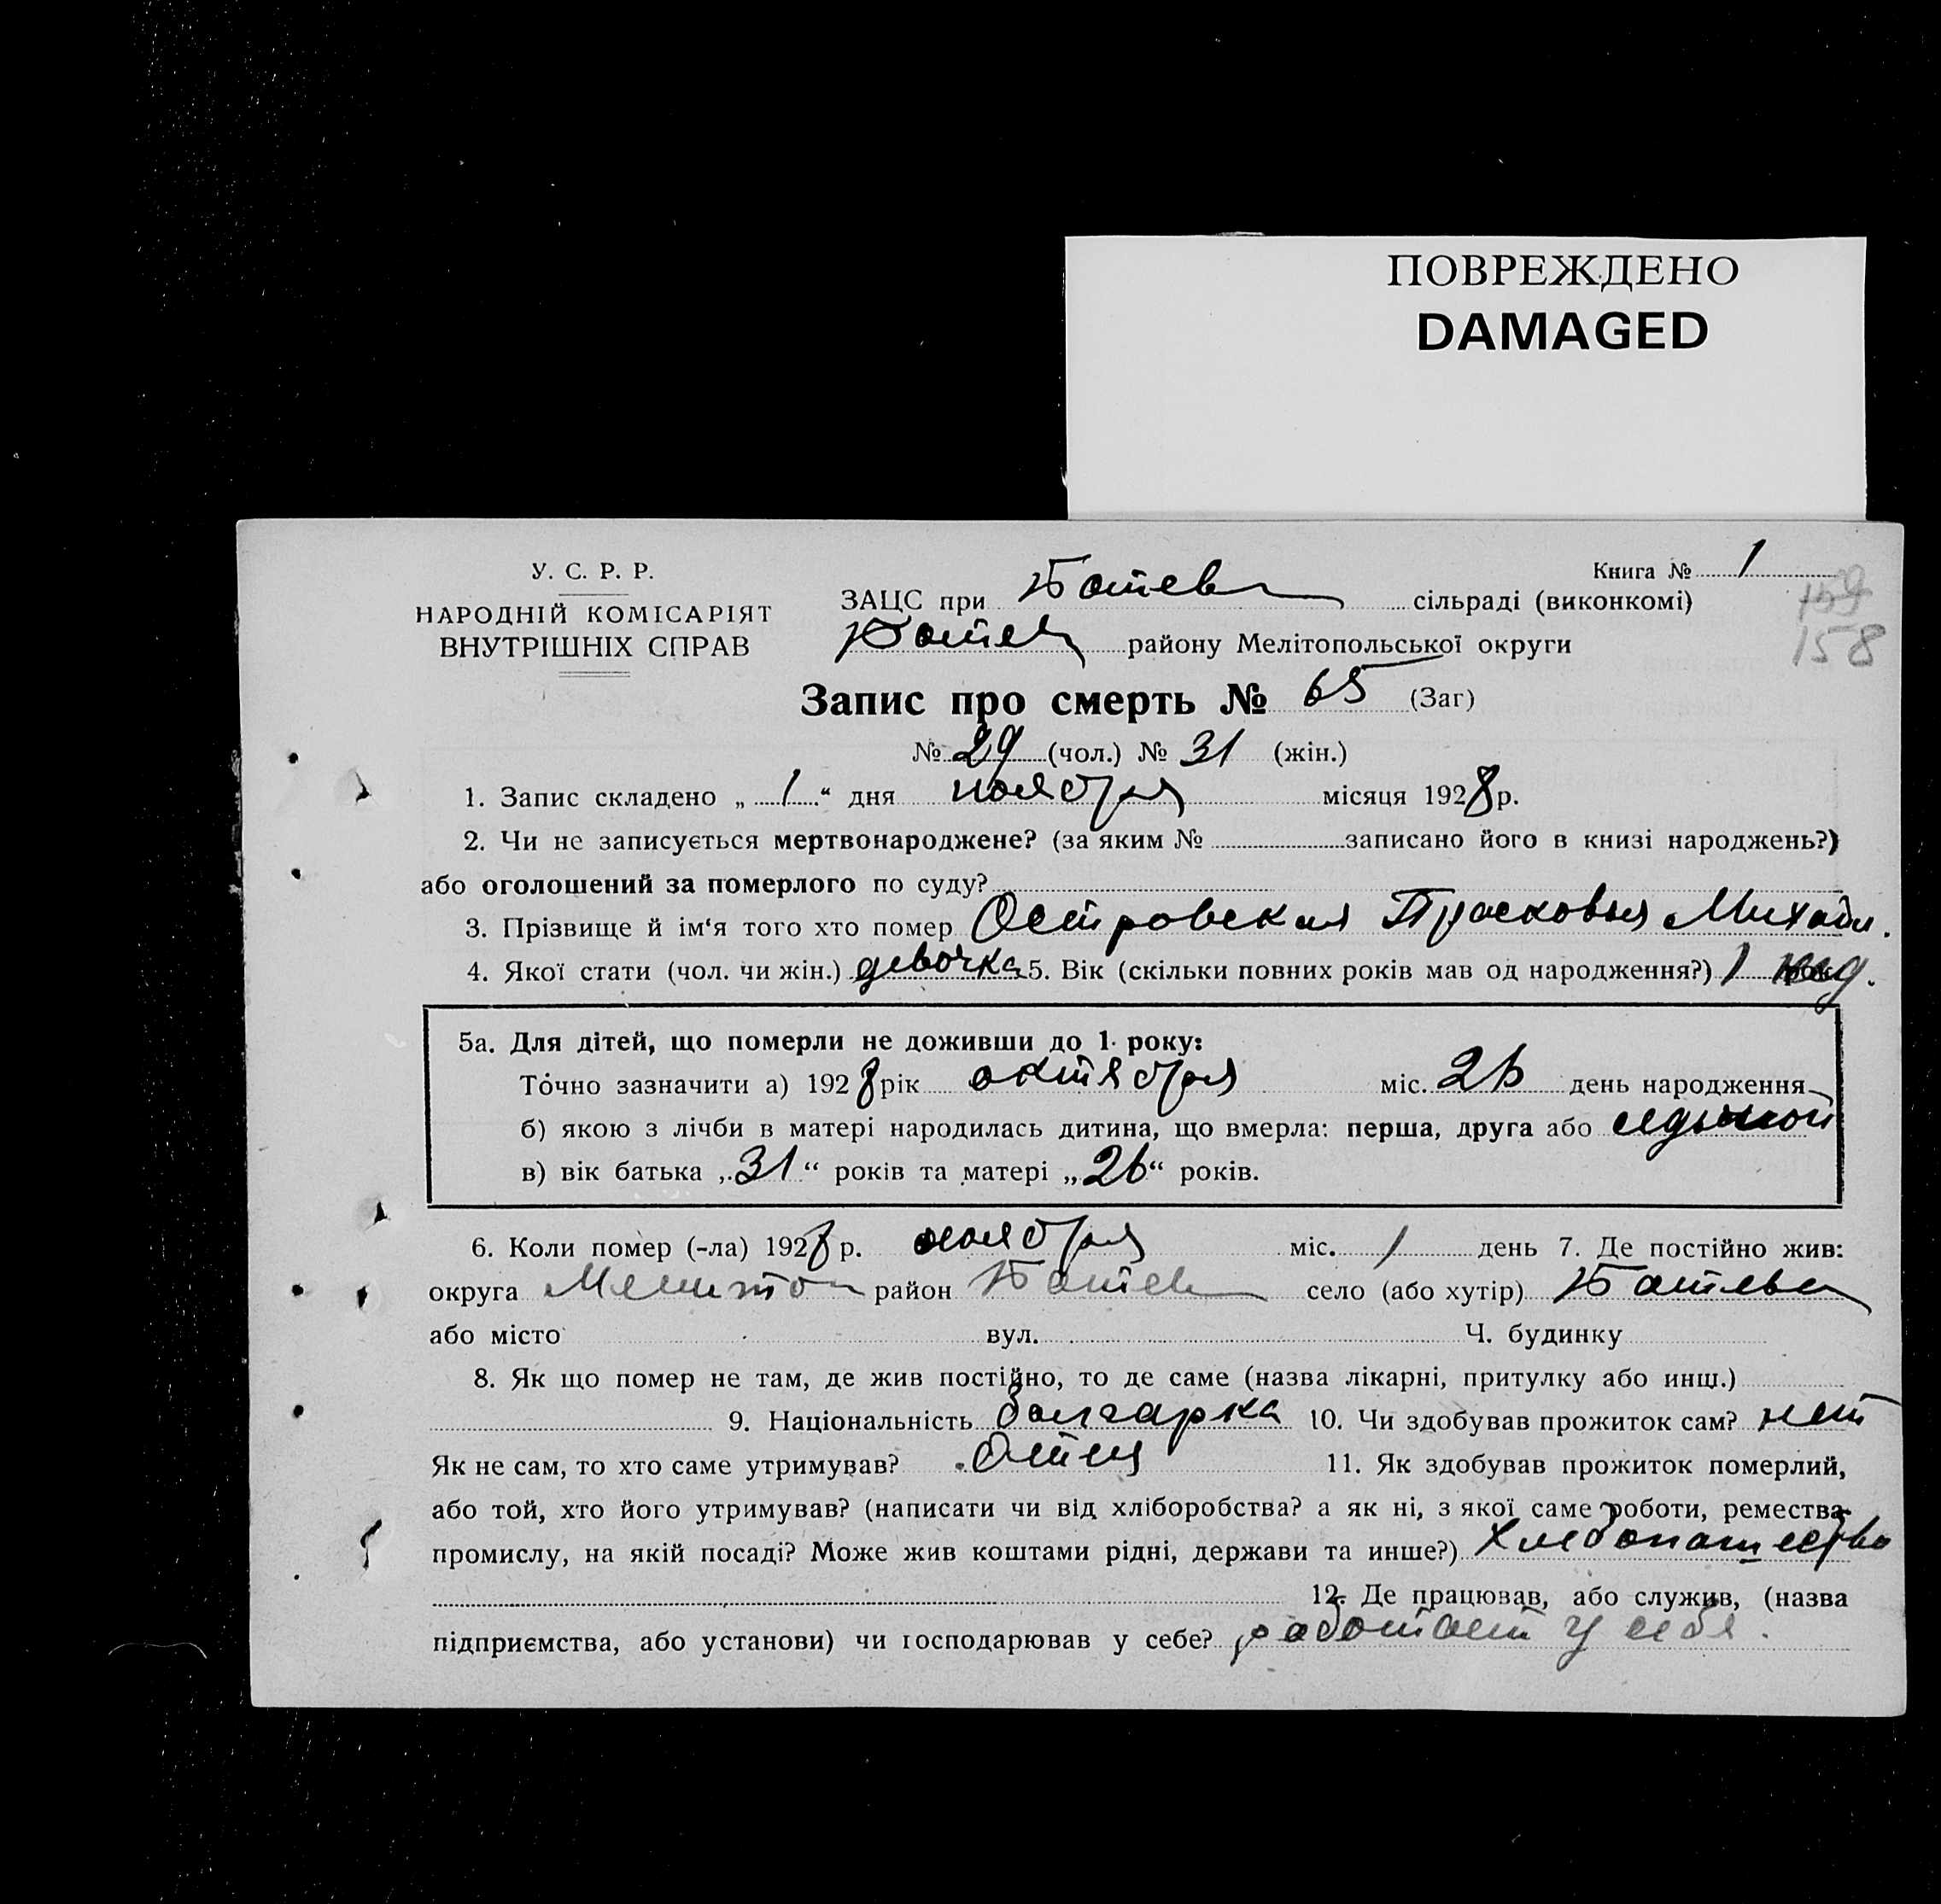 ПОВРЕЖДЕНО
DAMAGED
У. С. Р. Р.
НАРОДНІЙ КОМІСАРІЯТ
ВНУТРІШНІХ СПРАВ
Книга № 1
159
158
ЗАЦС при Ботев сільраді (виконкомі)
Ботев району Мелітопольської округи
Запис про смерть № 65 (Заг)
№ 29 (чол.) № 31 (жін.)
1. Запис складено „ 1 “ дня ноября місяця 1928 р.
2. Чи не записується мертвонароджене? (за яким № записано його в книзі народжень?)
або оголошений за померлого по суду?
3. Прізвище й ім‘я того хто помер Островская Прасковья Михайл.
4. Якої стати (чол. чи жін.) девочка 5. Вік (скільки повних років мав од народження?) 1 нед.
5а. Для дітей, що померли не доживши до 1 року:
Точно зазначити а) 1928 рік октября міс. 26 день народження
б) якою з лічби в матері народилась дитина, що вмерла: перша, друга або
в) вік батька „31“ років та матері „26“ років.
6. Коли помер (-ла) 1928 р. ноября міс. 1 день 7. Де постійно жив:
округа Мелитоп район Ботев село (або хутір) Ботево
або місто вул. Ч. будинку
8. Як що помер не там, де жив постійно, то де саме (назва лікарні, притулку або инш.)
9. Національність болгарка 10. Чи здобував прожиток сам? нет
Як не сам, то хто саме утримував? Отец 11. Як здобував прожиток померлий,
або той, хто його утримував? (написати чи від хліборобства? а як ні, з якої саме роботи, ремества
промислу, на якій посаді? Може жив коштами рідні, держави та инше?) Хлебопашество
12. Де працював, або служив, (назва
підприємства, або установи) чи господарював у себе? работает у себя.